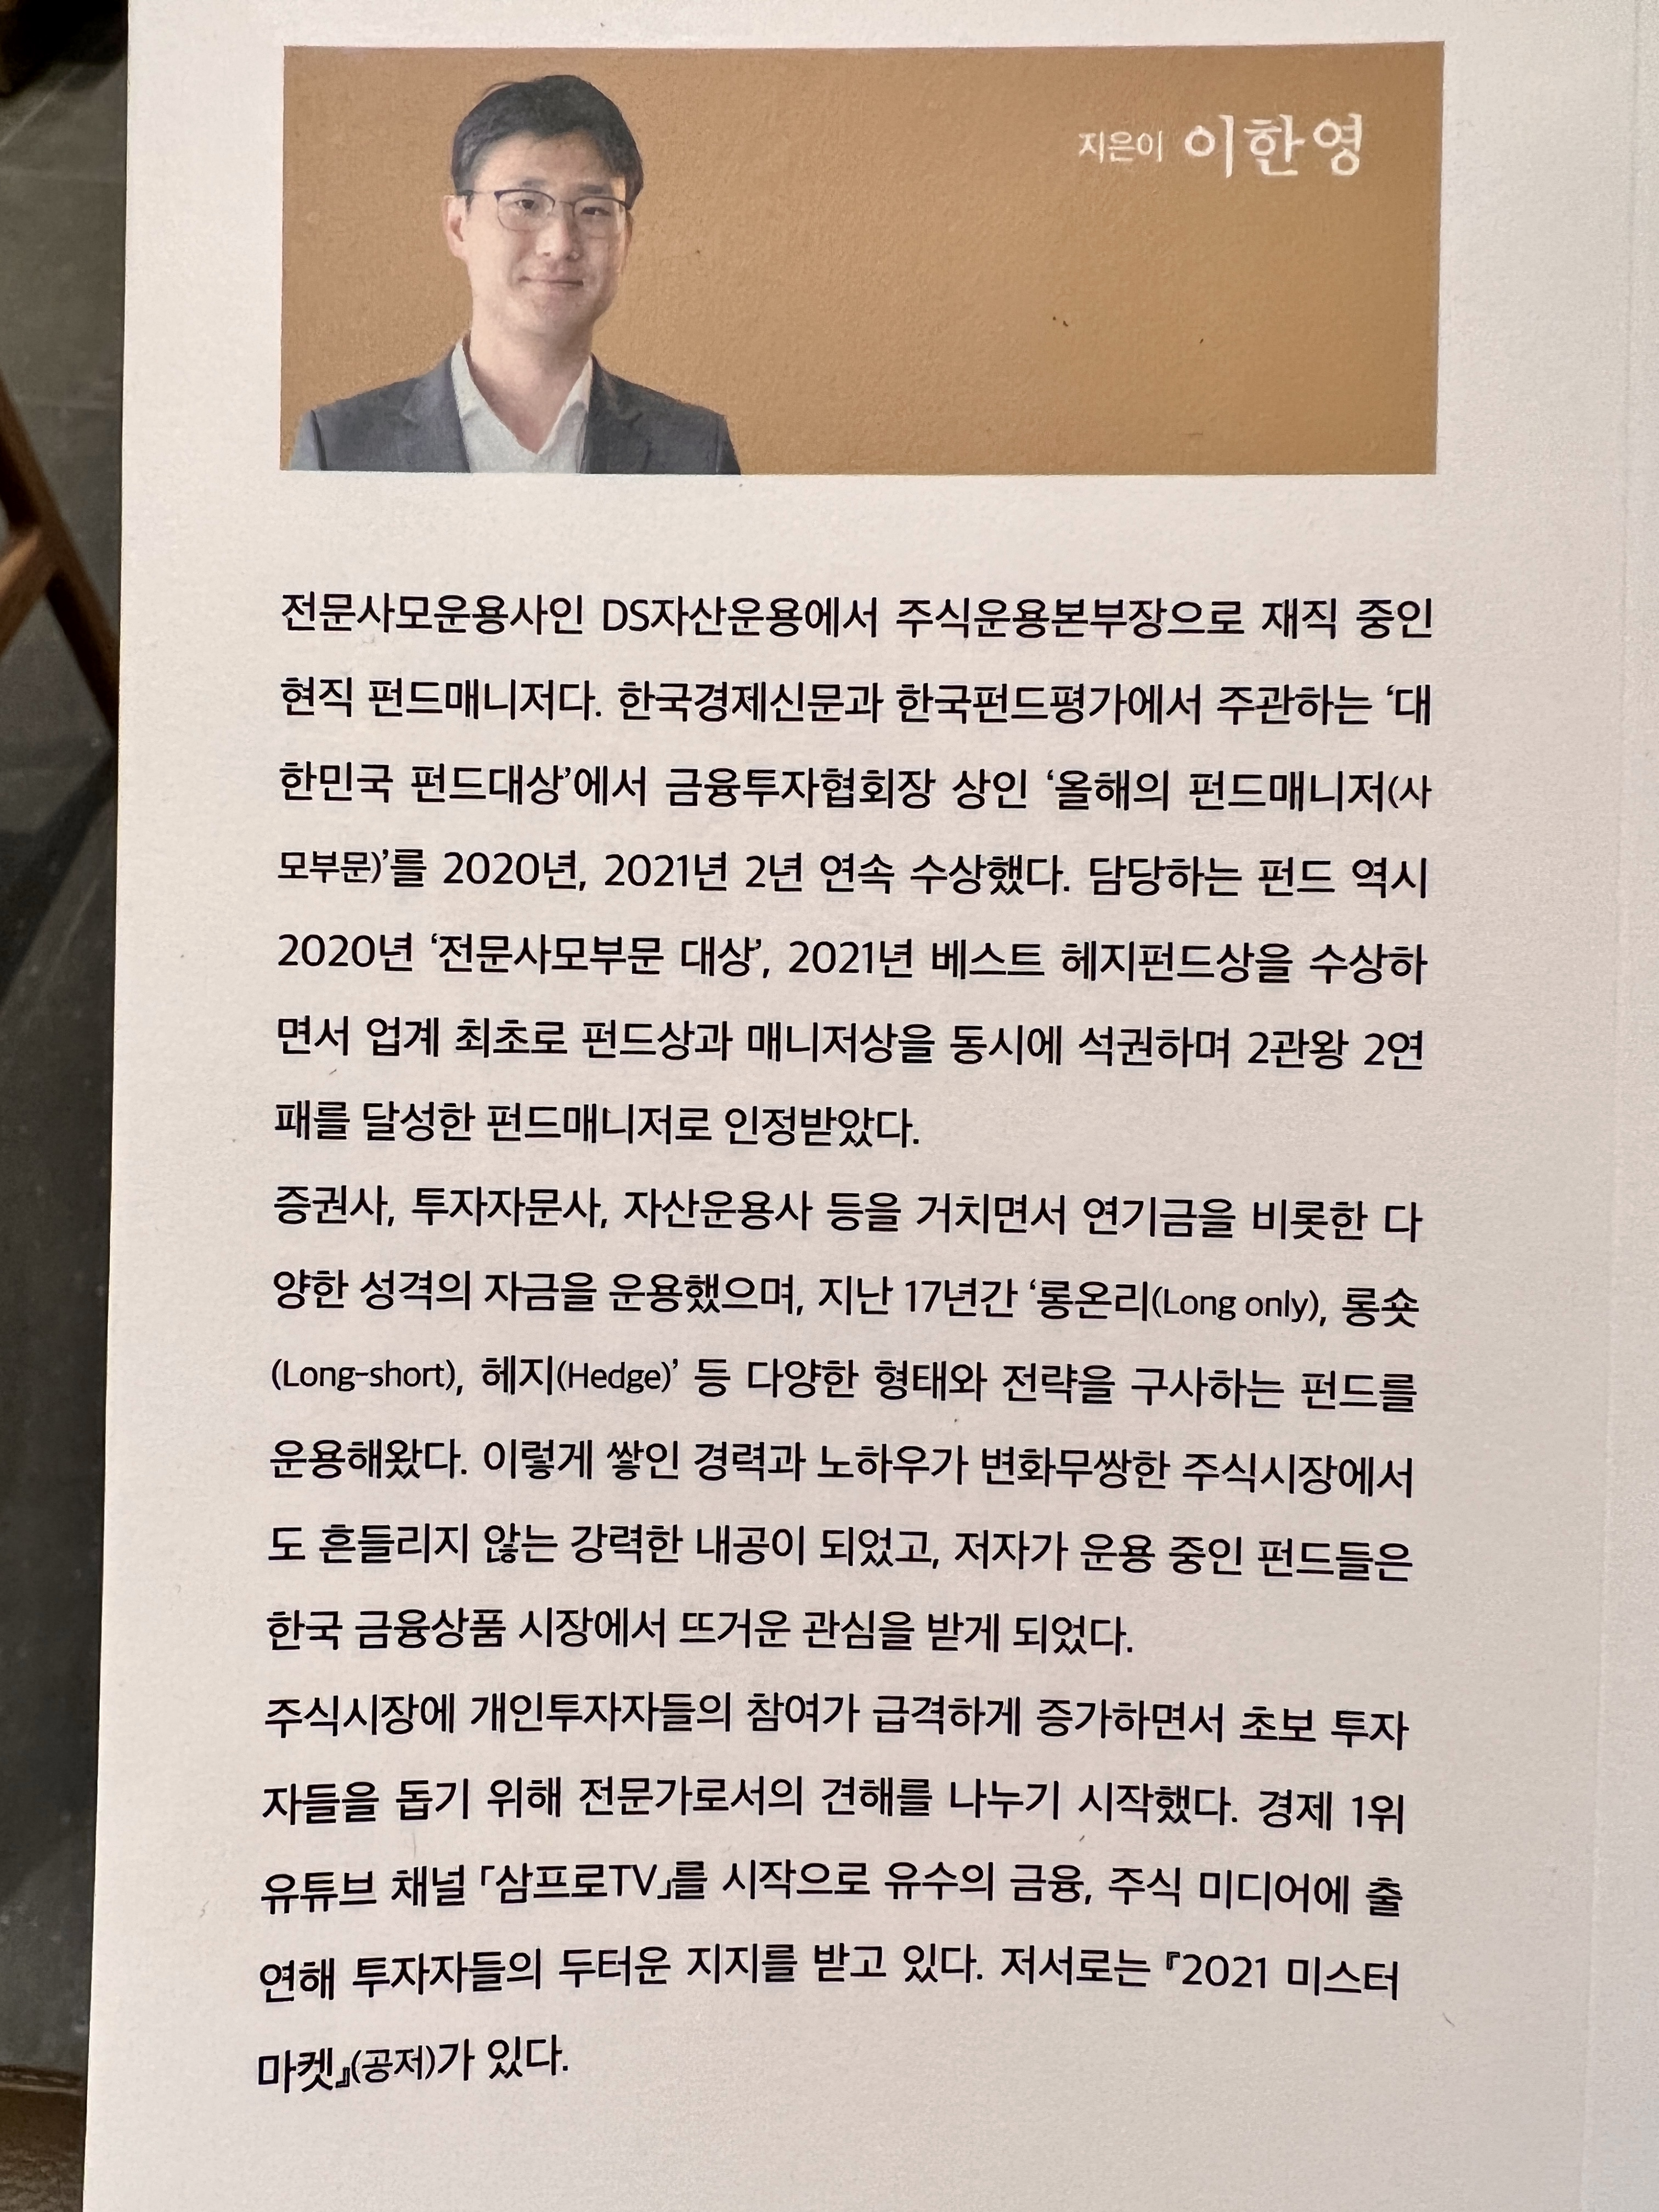 지은이 이한영
전문사모운용사인 DS자산운용에서 주식운용본부장으로 재직 중인
현직 펀드매니저다. 한국경제신문과 한국펀드평가에서 주관하는 ‘대
한민국 펀드대상’에서 금융투자협회장 상인 ‘올해의 펀드매니저(사
모부문)’를 2020년, 2021년 2년 연속 수상했다. 담당하는 펀드 역시
2020년 ‘전문사모부문 대상’, 2021년 베스트 헤지펀드상을 수상하
면서 업계 최초로 펀드상과 매니저상을 동시에 석권하며 2관왕 2연
패를 달성한 펀드매니저로 인정받았다.
증권사, 투자자문사, 자산운용사 등을 거치면서 연기금을 비롯한 다
양한 성격의 자금을 운용했으며, 지난 17년간 ‘롱온리(Long only), 롱숏
(Long-short), 헤지(Hedge)’ 등 다양한 형태와 전략을 구사하는 펀드를
운용해왔다. 이렇게 쌓인 경력과 노하우가 변화무쌍한 주식시장에서
도 흔들리지 않는 강력한 내공이 되었고, 저자가 운용 중인 펀드들은
한국 금융상품 시장에서 뜨거운 관심을 받게 되었다.
주식시장에 개인투자자들의 참여가 급격하게 증가하면서 초보 투자
자들을 돕기 위해 전문가로서의 견해를 나누기 시작했다. 경제 1위
유튜브 채널 「삼프로TV」를 시작으로 유수의 금융, 주식 미디어에 출
연해 투자자들의 두터운 지지를 받고 있다. 저서로는 『2021 미스터
마켓』(공저)가 있다.